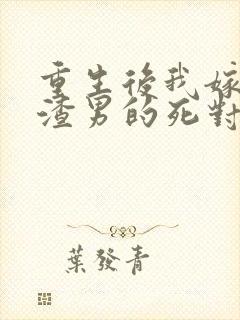 重生後我嫁
渣男的死對
葉發青